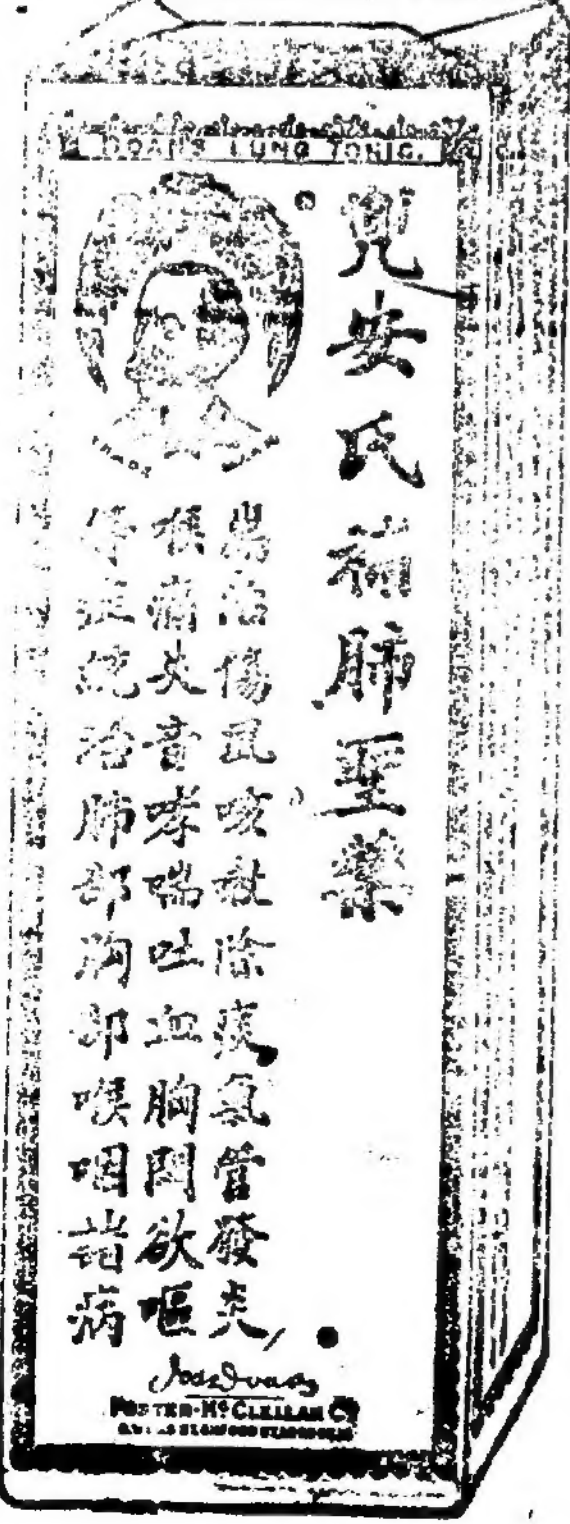 DOAN'S LUNG TONIC.
兜安氏補肺聖藥
專治傷風咳嗽除痰氣管發炎
喉痛失音哮喘吐血胸悶欲嘔
等症統治肺部胸部喉咽諸病
FOSTER-McCLELLAN Co